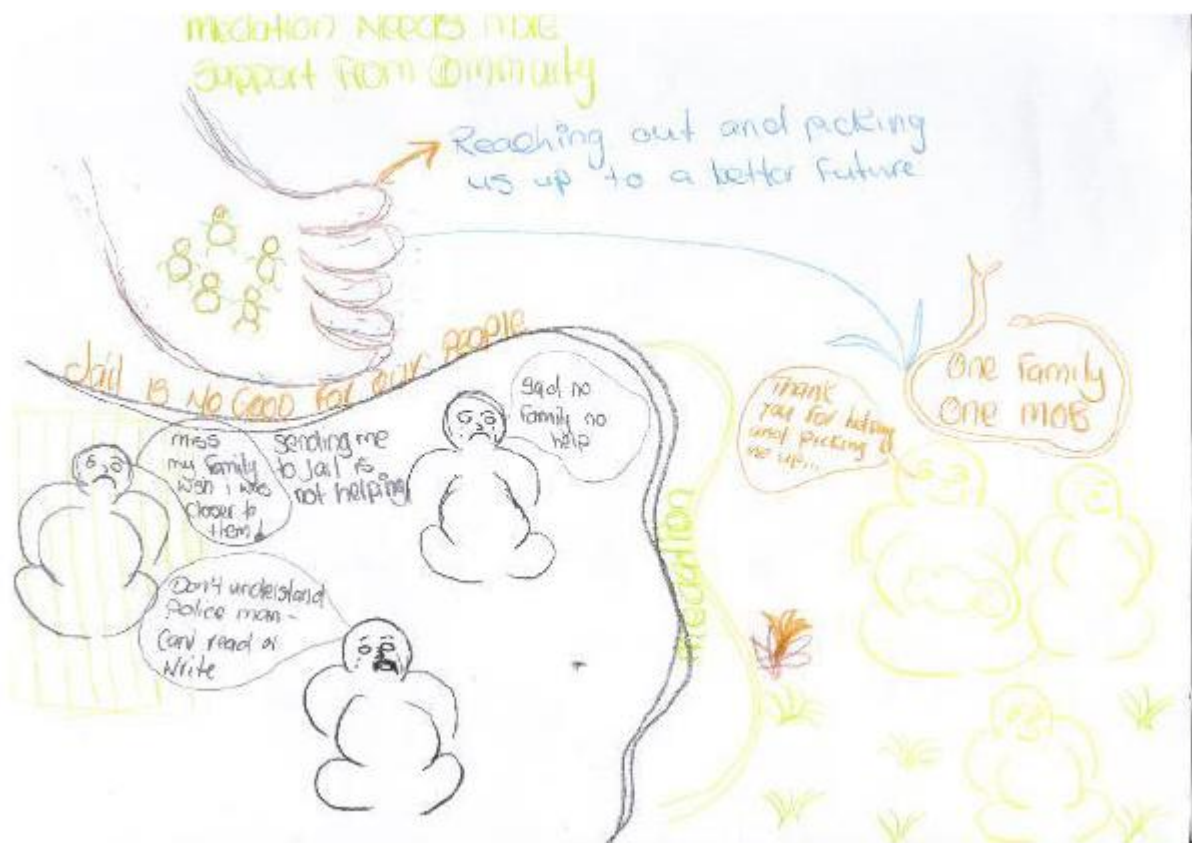 Mediation Needs more
Support From Community
Reaching out and picking
us up to a better Future
Jail is No Good For our PEOPLE
sad no
Family no
help
miss
my Family
wish i was
closer to
them!
sending me
to Jail is
not helping
Don't understand
Police man -
Can't read or
Write
Mediation
Thank
You for helping
and picking
me up...
One Family
One MOB